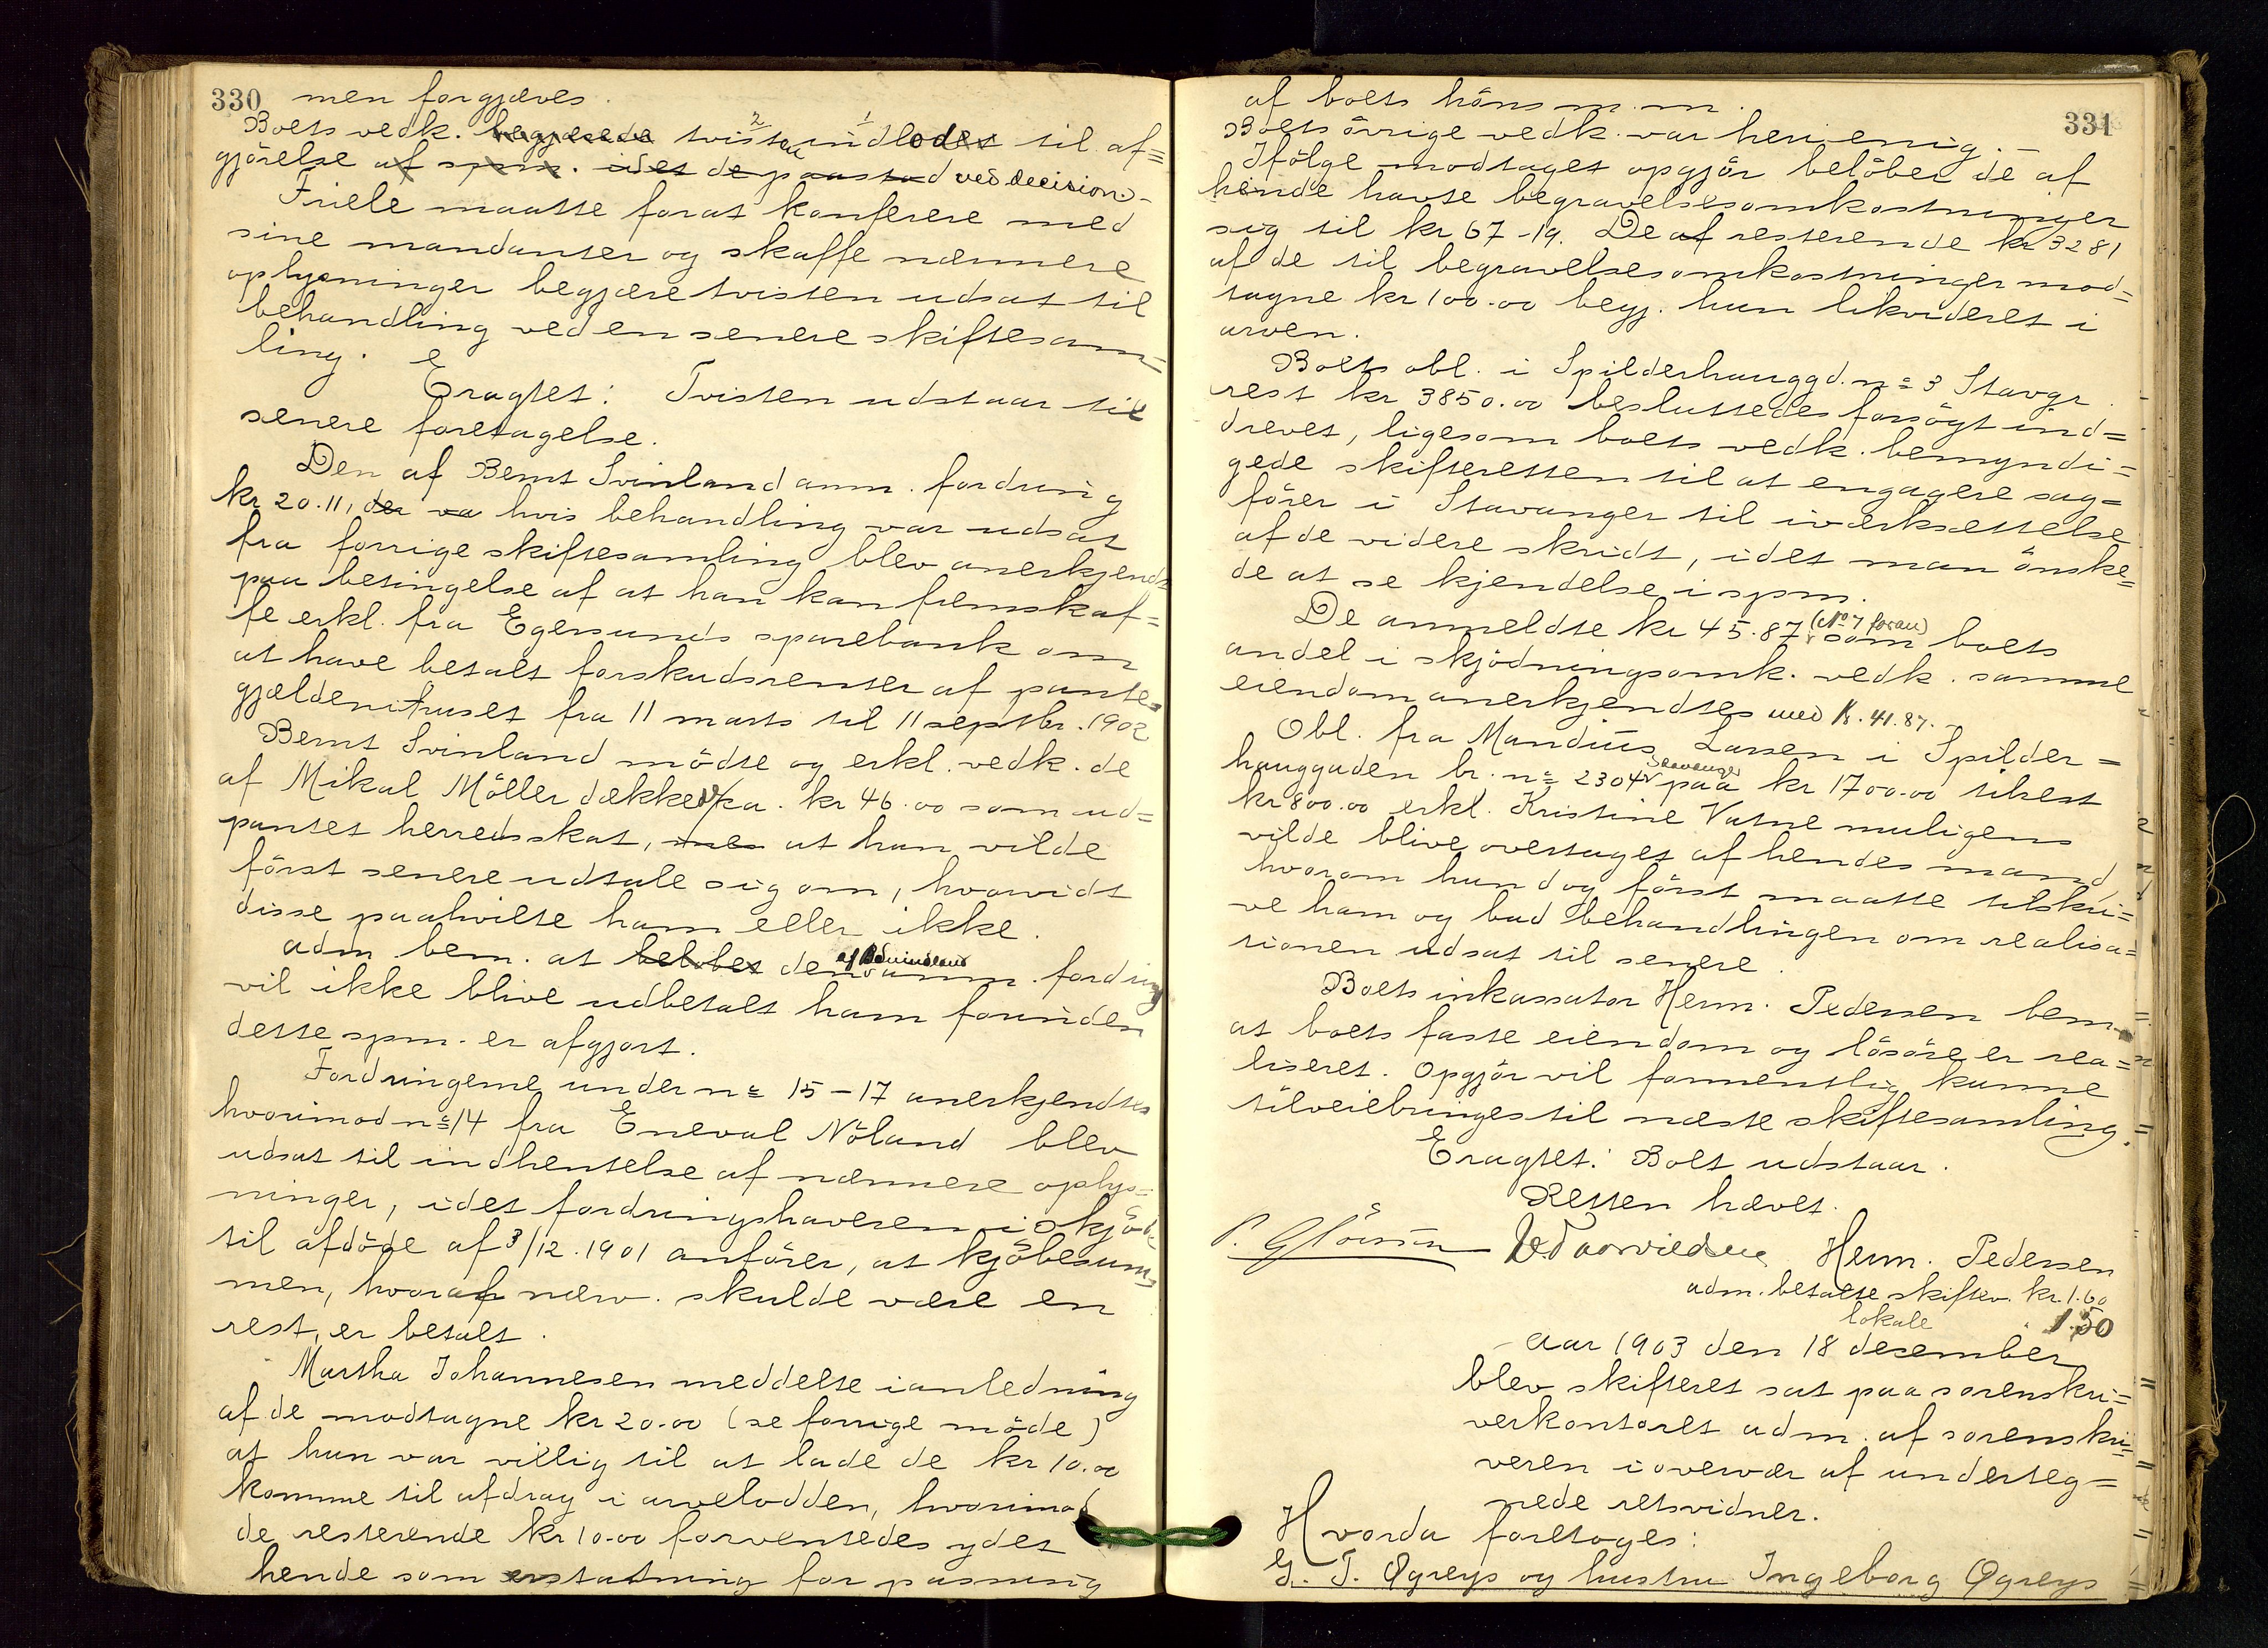 330 men forgjæves.
Boets vedk. begjærede tvisten indlodet til af=
gjörelse af spm. idet de paastod ved decision. -
Friele maatte forat konferere med
sine mandanter og skaffe nærmere
oplysninger begjære tvisten udsat til
behandling ved en senere skiftesam=
ling.
Eragtet: Tvisten udstaar til
senere foretagelse.
Den af Bernt Svinland anm. fordring
kr 20.11, der va hvis behandling var udsat
fra forrige skiftesamling blev anerkjendt
paa betingelse af at han kan fremskaf=
fe erkl. fra Egersunds sparebank om
at have betalt forskudsrenter af pante=
gjælden i huset fra 11 marts til 11 septbr. 1902
Bernt Svinland mödte og erkl. vedk. de
af Mikal Möller dækkede ca. kr 46.00 som ud=
pantet herredsskat, men at han vilde
först senere udtale sig om, hvorvidt
disse paahvilte ham eller ikke.
adm bem. at belöbet den af B Svindland anm. fordring
vil ikke blive udbetalt ham forinden
dette spm. er afgjort.
Fordringerne under no 15-17 anerkjendtes
hvorimod no 14 fra Eneval Nöland blev
udsat til indhentelse af nærmere oplys=
ninger, idet fordringshaveren i skjöde
til afdöde af 3/12.1901 anförer, at kjöbesum=
men, hvoraf nærv. skulde være en
rest, er betalt.
Martha Johannesen meddelte i anledning
af de modtagne kr 20.00 (se forrige möde)
at hun var villig til at lade de kr 10.00
komme til afdrag i arvelodden, hvorimod
de resterende kr 10.00 forventedes ydet
hende som erstatning for pasning
331
af boets höns m.m.
Boets övrige vedk. var heri enig.
Ifölge modtaget opgjör belöber de af
hende havte begravelsesomkostninger
sig til kr 67-19. De af resterende kr 3281
af de til begravelsesomkostninger mod=
tagne kr 100.00 begj. hun likvideret i
arven.
Boets obl. i Spilderhauggd. no 3 Stavgr.
rest kr 3850.00 besluttedes forsögt ind=
drevet, ligesom boets vedk. bemyndi=
gede skifteretten til at engagere sag=
förer i Stavanger til iværksættelse
af de videre skridt, idet man önske=
de at se kjendelse i spm.
De anmeldte kr 45.87 (No 7 foran) som boets
andel i skjödningsomk. vedk. samme
eiendom anerkjendtes med Kr. 41.87. -
Obl. fra Mandius Larsen i Spilder=
hauggaden br. no 2304 Stavanger paa kr 1700.00 tilrest
kr 800.00 erkl. Kristine Vatne muligens
vilde blive overtaget af hendes mand,
hvorom hun dog först maatte tilskri=
ve ham og bad behandlingen om realisa=
tionen udsat til senere.
Boets inkassator Herm. Pedersen bem.
at boets faste eiendom og lösöre er rea=
liseret. Opgjör vil formentlig kunne
tilveiebringes til næste skiftesamling.
Eragtet: Boet udstaar.
Retten hævet.
Herm. Pedersen
adm. betalte skiftev. kr. 1.60
lokale " 1.50
Aar 1903 den 18 desember
blev skifteret sat paa sorenskri=
verkontoret adm. af sorenskri=
veren i overvær af underteg=
nede retsvidner.
Hvorda foretoges:
G. T. Øgreys og hustru Ingeborg Øgreys